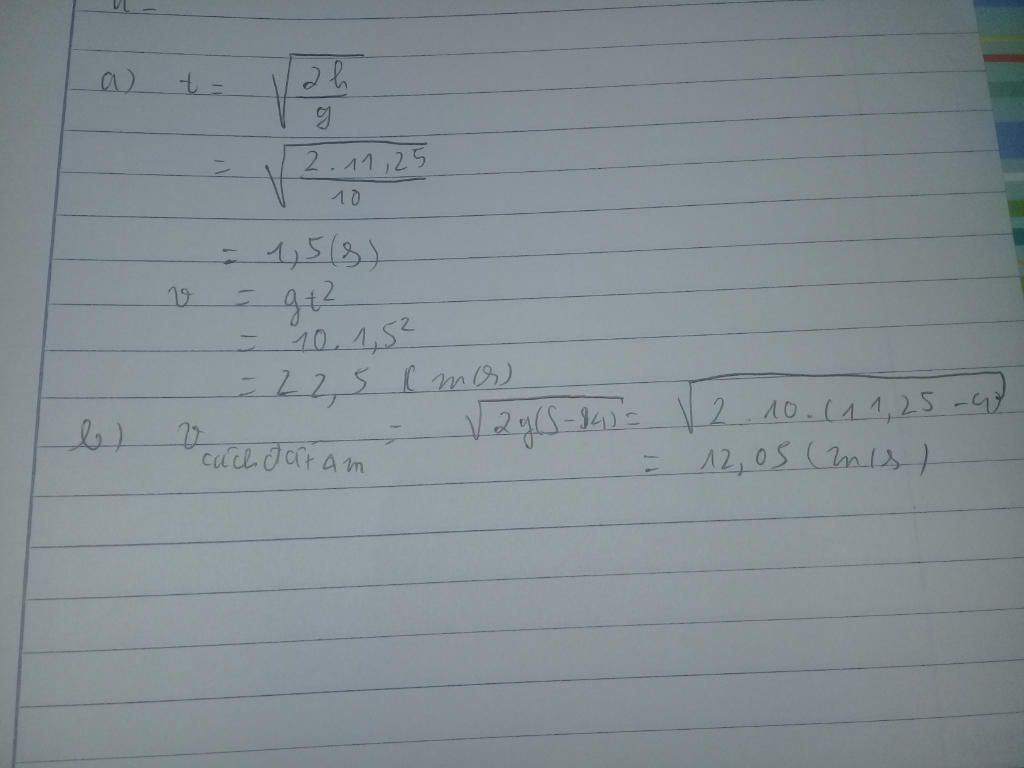 a) t = √(2h/g)
= √(2.11,25/10)
= 1,5(s)
v = gt²
= 10.1,5²
= 22,5 (m/s)
b) v cách đất 4m = √(2g(S-S4)) = √(2.10.(11,25-4))
= 12,05 (m/s)